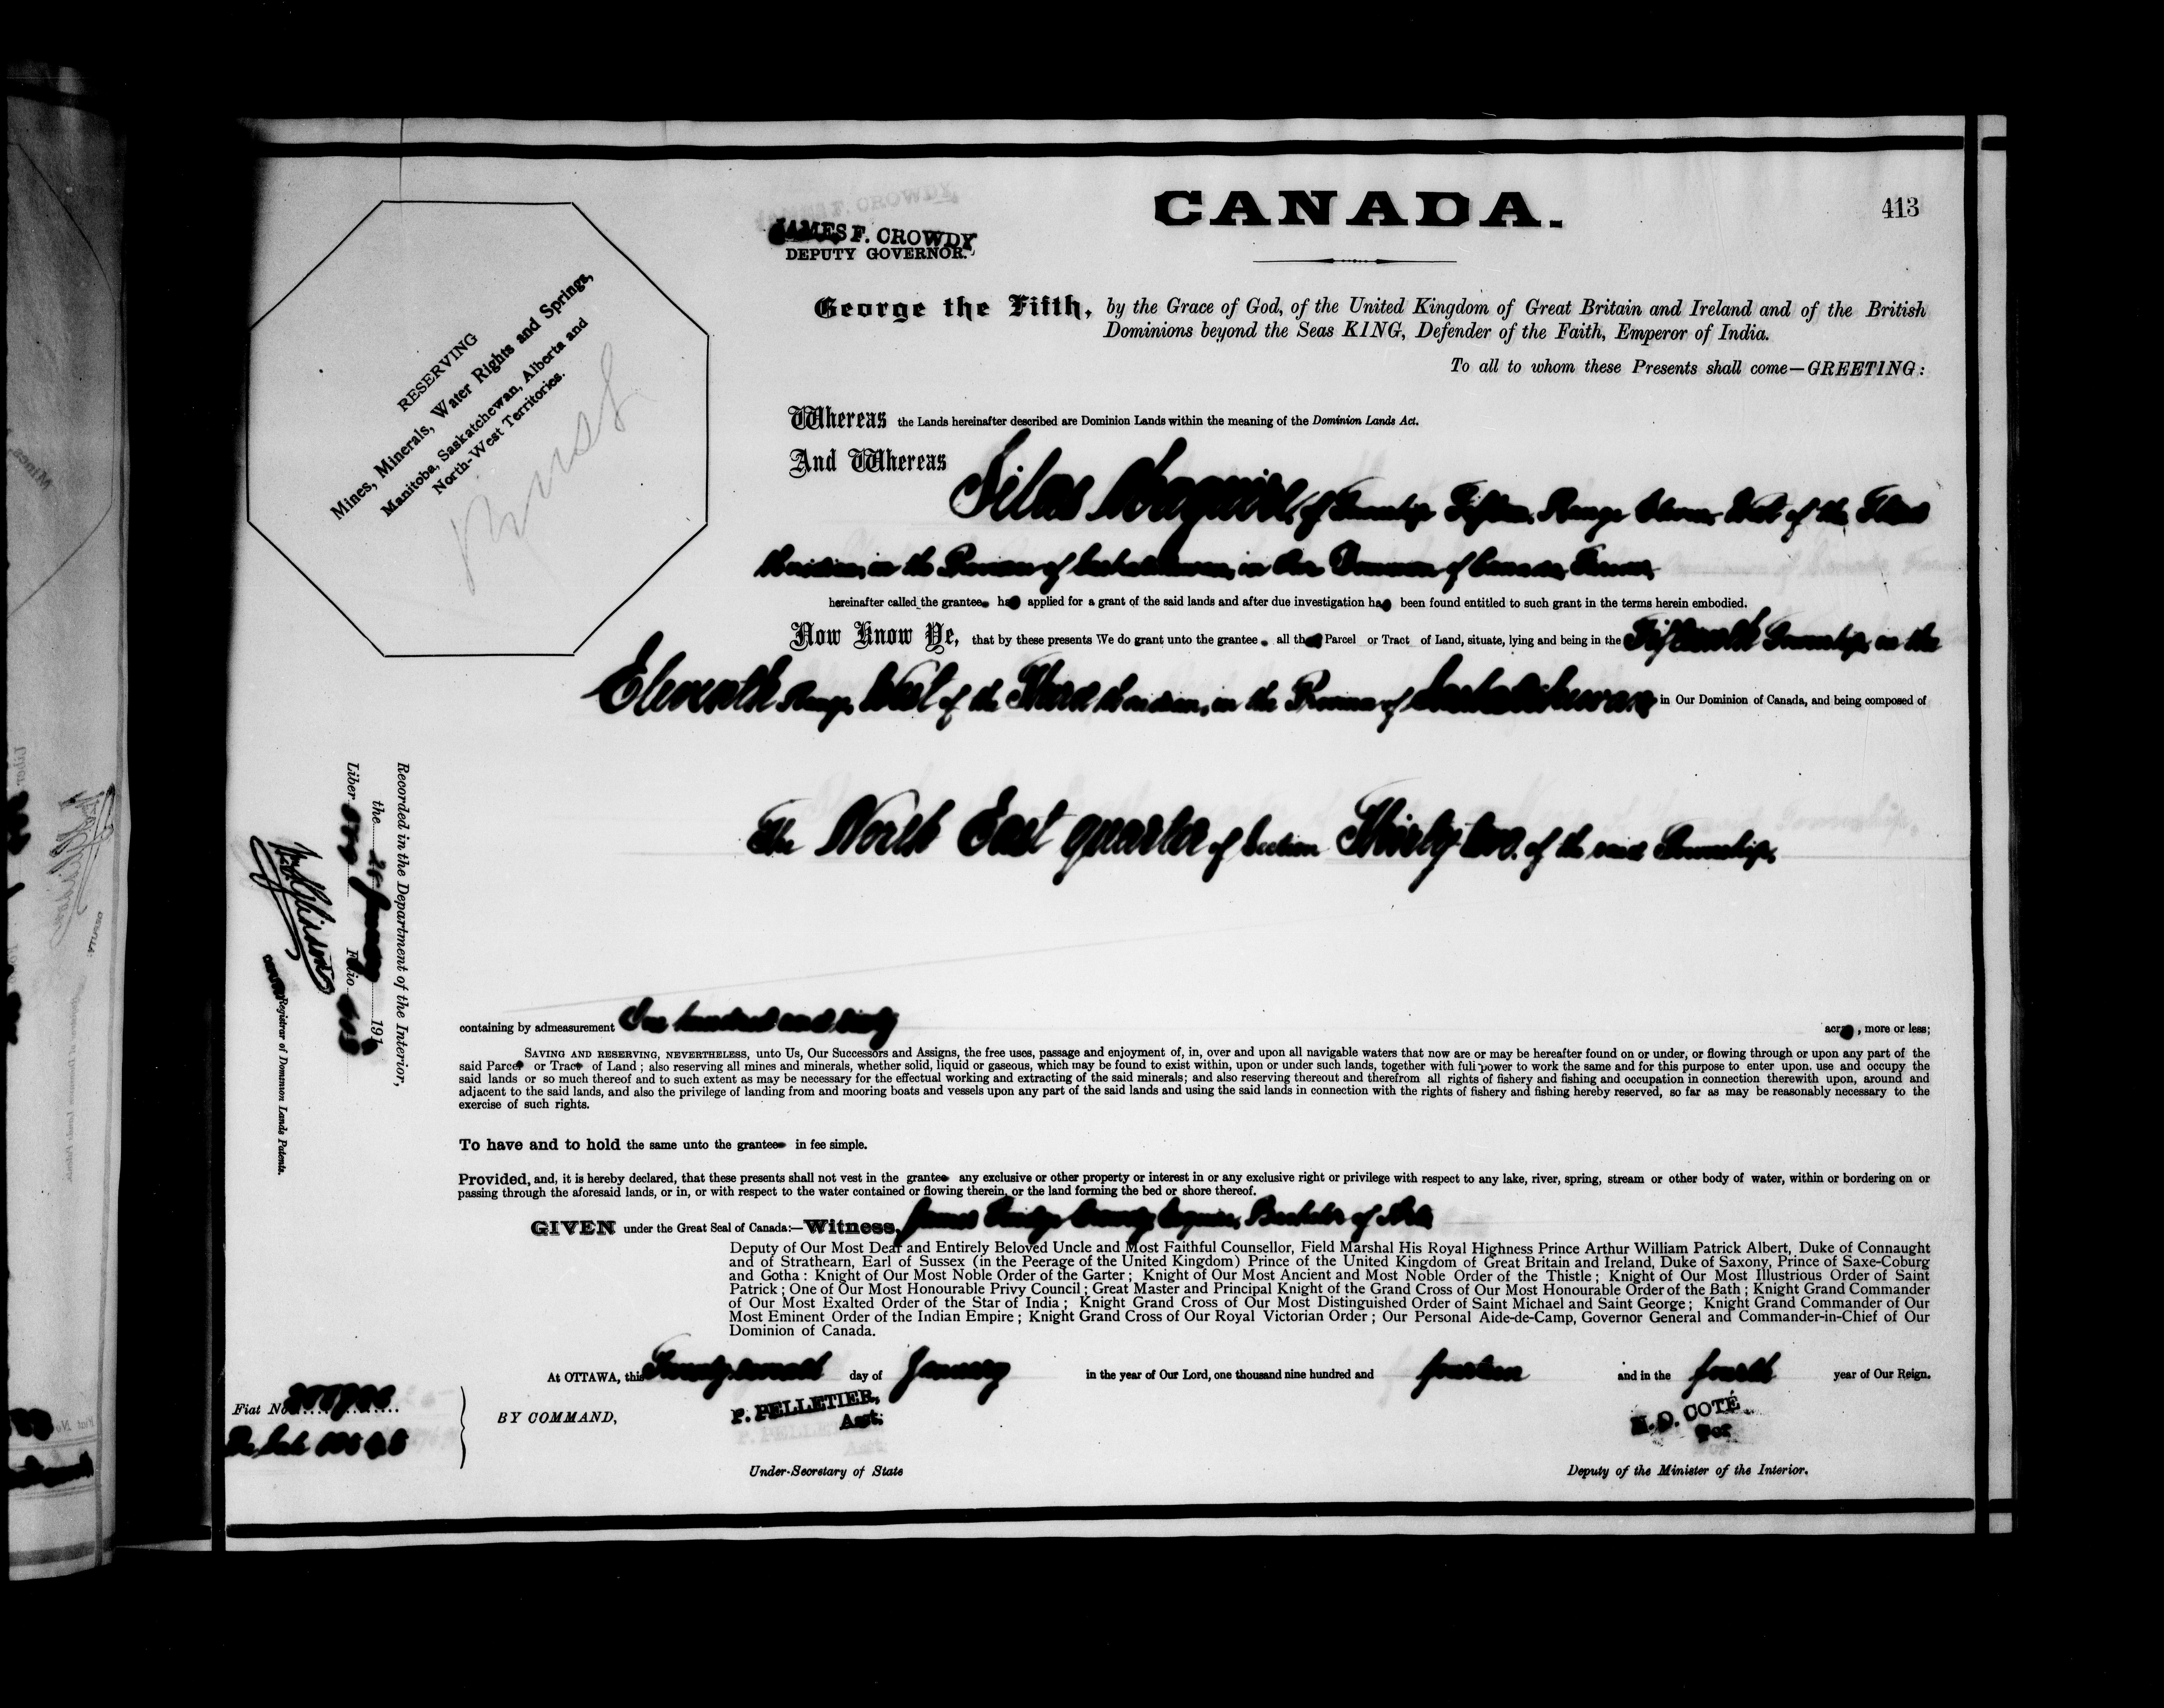 CANADA.
413
JAMES F. CROWDY
DEPUTY GOVERNOR.
RESERVING
Mines, Minerals, Water Rights and Springs,
Manitoba, Saskatchewan, Alberta and
North-West Territories.
George the Fifth, by the Grace of God, of the United Kingdom of Great Britain and Ireland and of the British
Dominions beyond the Seas KING, Defender of the Faith, Emperor of India.
To all to whom these Presents shall come—GREETING:
Whereas the Lands hereinafter described are Dominion Lands within the meaning of the Dominion Lands Act.
And Whereas
Silas of Township Fifteen, Range Eleven West of the Third
Meridian, in the Province of Saskatchewan, in Our Dominion of Canada, Farmer,
hereinafter called the grantee has applied for a grant of the said lands and after due investigation has been found entitled to such grant in the terms herein embodied.
Now Know Ye, that by these presents We do grant unto the grantee all that Parcel or Tract of Land, situate, lying and being in the Fifteenth Township, in the
Eleventh Range, West of the Third Meridian, in the Province of Saskatchewan, in Our Dominion of Canada, and being composed of
The North East quarter of Section Thirty two, of the said Township,
containing by admeasurement One hundred and sixty acres, more or less;
SAVING AND RESERVING, NEVERTHELESS, unto Us, Our Successors and Assigns, the free uses, passage and enjoyment of, in, over and upon all navigable waters that now are or may be hereafter found on or under, or flowing through or upon any part of the
said Parcel or Tract of Land; also reserving all mines and minerals, whether solid, liquid or gaseous, which may be found to exist within, upon or under such lands, together with full power to work the same and for this purpose to enter upon, use and occupy the
said lands or so much thereof and to such extent as may be necessary for the effectual working and extracting of the said minerals; and also reserving thereout and therefrom all rights of fishery and fishing and occupation in connection therewith upon, around and
adjacent to the said lands, and also the privilege of landing from and mooring boats and vessels upon any part of the said lands and using the said lands in connection with the rights of fishery and fishing hereby reserved, so far as may be reasonably necessary to the
exercise of such rights.
To have and to hold the same unto the grantee in fee simple.
Provided, and, it is hereby declared, that these presents shall not vest in the grantee any exclusive or other property or interest in or any exclusive right or privilege with respect to any lake, river, spring, stream or other body of water, within or bordering on or
passing through the aforesaid lands, or in, or with respect to the water contained or flowing therein, or the land forming the bed or shore thereof.
GIVEN under the Great Seal of Canada:—Witness, James Crowdy, Esquire, Bachelor of Arts
Deputy of Our Most Dear and Entirely Beloved Uncle and Most Faithful Counsellor, Field Marshal His Royal Highness Prince Arthur William Patrick Albert, Duke of Connaught
and of Strathearn, Earl of Sussex (in the Peerage of the United Kingdom) Prince of the United Kingdom of Great Britain and Ireland, Duke of Saxony, Prince of Saxe-Coburg
and Gotha: Knight of Our Most Noble Order of the Garter; Knight of Our Most Ancient and Most Noble Order of the Thistle; Knight of Our Most Illustrious Order of Saint
Patrick; One of Our Most Honourable Privy Council; Great Master and Principal Knight of the Grand Cross of Our Most Honourable Order of the Bath; Knight Grand Commander
of Our Most Exalted Order of the Star of India; Knight Grand Cross of Our Most Distinguished Order of Saint Michael and Saint George; Knight Grand Commander of Our
Most Eminent Order of the Indian Empire; Knight Grand Cross of Our Royal Victorian Order; Our Personal Aide-de-Camp, Governor General and Commander-in-Chief of Our
Dominion of Canada.
At OTTAWA, this day of January in the year of Our Lord, one thousand nine hundred and fourteen and in the fourth year of Our Reign.
BY COMMAND,
P. PELLETIER,
Asst:
Under-Secretary of State
N. O. COTÉ
For
Deputy of the Minister of the Interior.
Fiat No
Recorded in the Department of the Interior,
the January 191
Liber Folio
Registrar of Dominion Lands Patents.